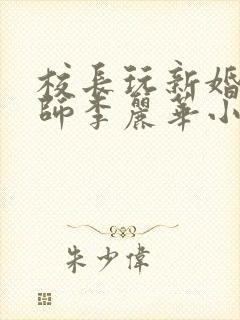 校長玩新婚
師李麗華小
朱少偉